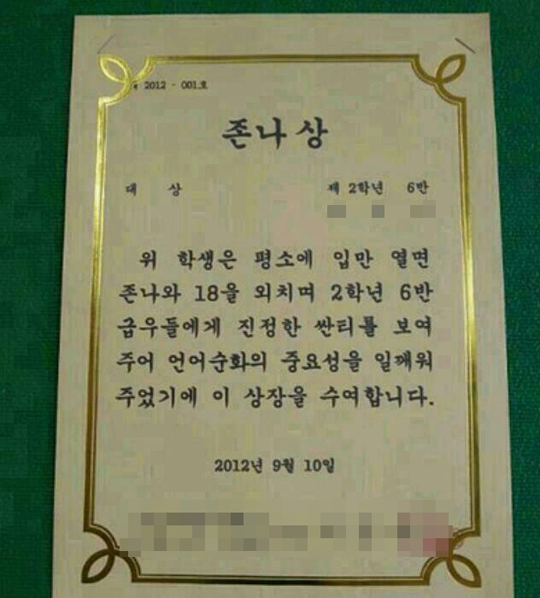 2012 - 001호
존나상
대 상 제 2학년 6반
위 학생은 평소에 입만 열면
존나와 18을 외치며 2학년 6반
급우들에게 진정한 싼티를 보여
주어 언어순화의 중요성을 일깨워
주었기에 이 상장을 수여합니다.
2012년 9월 10일